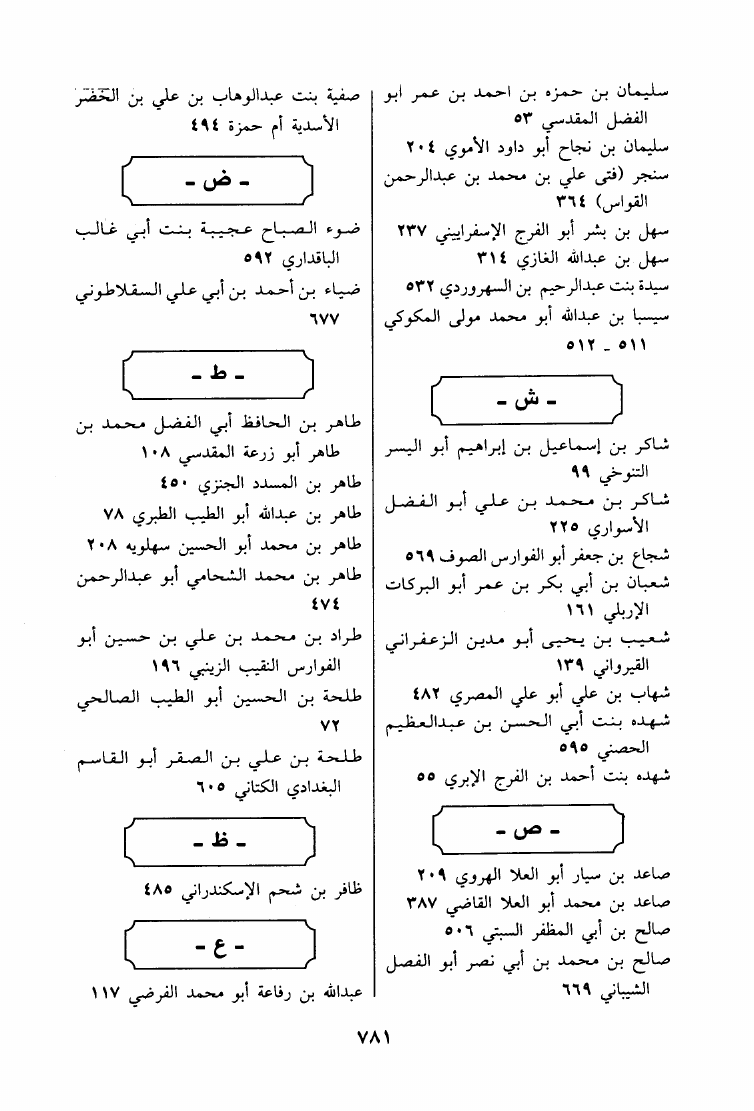 سليمان بن حمزه بن احمد بن عمر ابو
الفضل المقدسي ٥٣
سليمان بن نجاح أبو داود الأموي ٢٠٤
سنجر (فتى علي بن محمد بن عبدالرحمن
القواس) ٣٦٤
سهل بن بشر أبو الفرج الإسفراييني ٢٣٧
سهل بن عبدالله الغازي ٣١٤
سيدة بنت عبدالرحيم بن السهروردي ٥٣٢
سيسبا بن عبدالله أبو محمد مولى المكوكي
٥١١ ـ ٥١٢
- ش -
شاكر بن إسماعيل بن إبراهيم أبو اليسر
التنوخي ٩٩
شاكر بن محمد بن علي أبو الفضل
الأسواري ٢٢٥
شجاع بن جعفر أبو الفوارس الصوف ٥٦٩
شعبان بن أبي بكر بن عمر أبو البركات
الإربلي ١٦١
شعيب بن يحيى أبو مدين الزعفراني
القيرواني ١٣٩
شهاب بن علي أبو علي المصري ٤٨٢
شهده بنت أبي الحسن بن عبدالعظيم
الحصني ٥٩٥
شهده بنت أحمد بن الفرج الإبري ٥٥
- ص -
صاعد بن سيار أبو العلا الهروي ٢٠٩
صاعد بن محمد أبو العلا القاضي ٣٨٧
صالح بن أبي المظفر السبتي ٥٠٦
صالح بن محمد بن أبي نصر أبو الفصل
الشيباني ٦٦٩
صفية بنت عبدالوهاب بن علي بن الخضر
الأسدية أم حمزة ٤٩٤
- ض -
ضوء الصباح عجيبة بنت أبي غالب
الباقداري ٥٩٢
ضياء بن أحمد بن أبي علي السقلاطوني
٦٧٧
- ط -
طاهر بن الحافظ أبي الفضل محمد بن
طاهر أبو زرعة المقدسي ١٠٨
طاهر بن المسدد الجنزي ٤٥٠
طاهر بن عبدالله أبو الطيب الطبري ٧٨
طاهر بن محمد أبو الحسين سهلويه ٢٠٨
طاهر بن محمد الشحامي أبو عبدالرحمن
٤٧٤
طراد بن محمد بن علي بن حسين أبو
الفوارس النقيب الزينبي ١٩٦
طلحة بن الحسين أبو الطيب الصالحي
٧٢
طلحة بن علي بن الصقر أبو القاسم
البغدادي الكتاني ٦٠٥
- ظ -
ظافر بن شحم الإسكندراني ٤٨٥
- ع -
عبدالله بن رفاعة أبو محمد الفرضي ١١٧
٧٨١